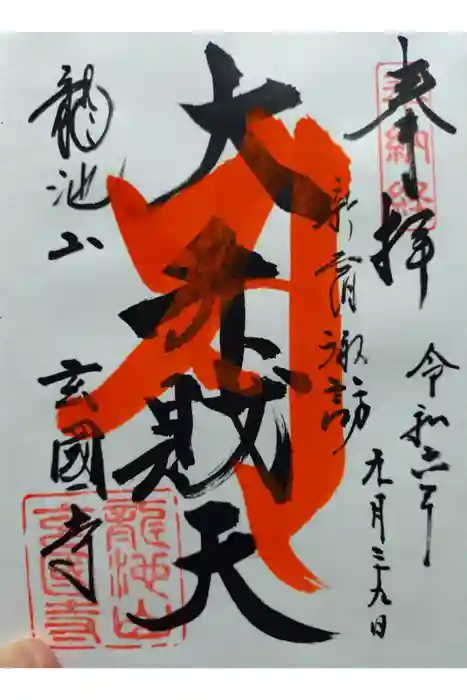 奉拝
奉納経
令和六年
月二十九日
新宿諏訪
大弁財天
龍池山
玄國寺
龍池山
玄国寺